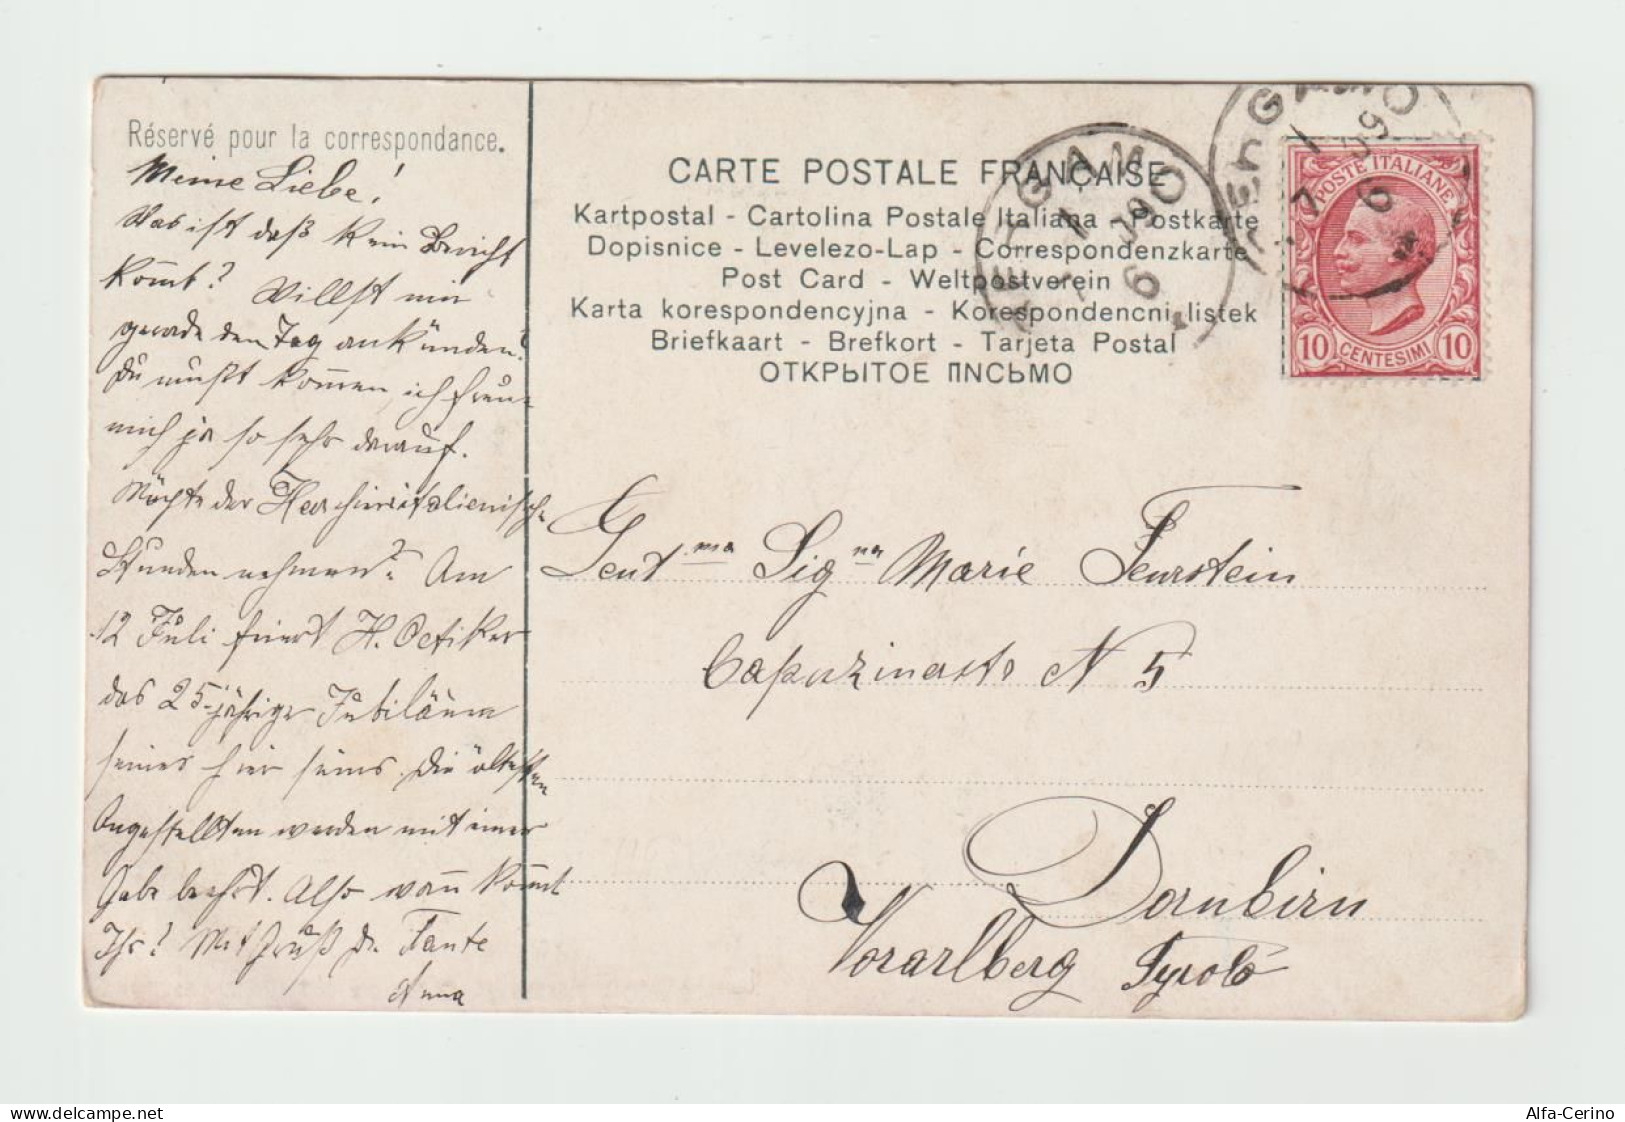 Réservé pour la correspondance.
Meine Liebe!
Was ist daß kein Bericht
kom̄t? Willst mir
gerade den Tag ankünden?
Du mußt kom̄en, ich freu-
mich ja so sehr darauf.
Möchte der Herr hier italienische
Stunden nehmen? Am
12 Juli feiert H. Oetiker
das 25-jährige Jubiläum
seines hier seins. Die ältesten
Angestellten werden mit einer
Gabe beehrt. Also wan̄ kom̄t
Ihr? Mit Gruß d. Tante
Anna
CARTE POSTALE FRANÇAISE
Kartpostal - Cartolina Postale Italiana - Postkarte
Dopisnice - Levelezo-Lap - Correspondenzkarte
Post Card - Weltpostverein
Karta korespondencyjna - Korespondencni listek
Briefkaart - Brefkort - Tarjeta Postal
ОТКРЫТОЕ ПИСЬМО
BERGAMO
BERGAMO
POSTE ITALIANE
10 CENTESIMI 10
Gent ma Sig na Marie Feurstein
Capuzinerstr N 5
Dornbirn
Vorarlberg Tyrolo
www.delcampe.net
Alfa-Cerino